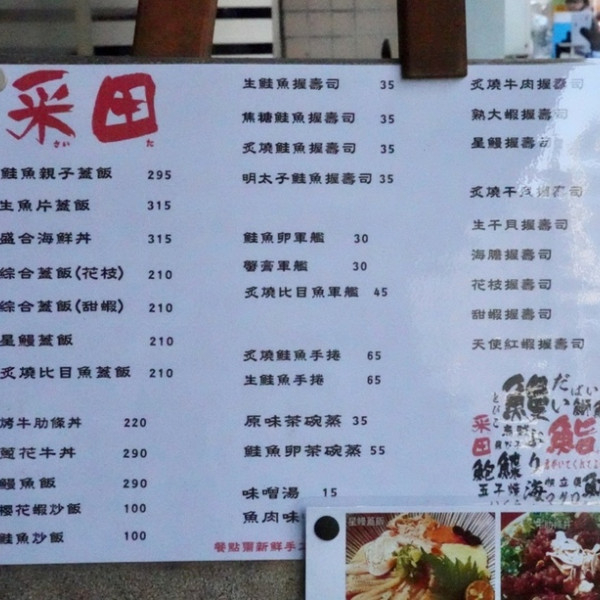 采田
さい た
鮭魚親子蓋飯 295
生魚片蓋飯 315
盛合海鮮丼 315
綜合蓋飯(花枝) 210
綜合蓋飯(甜蝦) 210
星鰻蓋飯 210
炙燒比目魚蓋飯 210
烤牛肋條丼 220
蔥花牛丼 290
鰻魚飯 290
櫻花蝦炒飯 100
鮭魚炒飯 100
生鮭魚握壽司 35
焦糖鮭魚握壽司 35
炙燒鮭魚握壽司 35
明太子鮭魚握壽司 35
鮭魚卵軍艦 30
蟹膏軍艦 30
炙燒比目魚軍艦 45
炙燒鮭魚手捲 65
生鮭魚手捲 65
原味茶碗蒸 35
鮭魚卵茶碗蒸 55
味噌湯 15
魚肉味
餐點需新鮮手工
炙燒牛肉握壽司
熟大蝦握壽司
星鰻握壽司
炙燒干貝握壽司
生干貝握壽司
海膽握壽司
花枝握壽司
甜蝦握壽司
天使紅蝦握壽司
采田
鮨
星鰻蓋飯